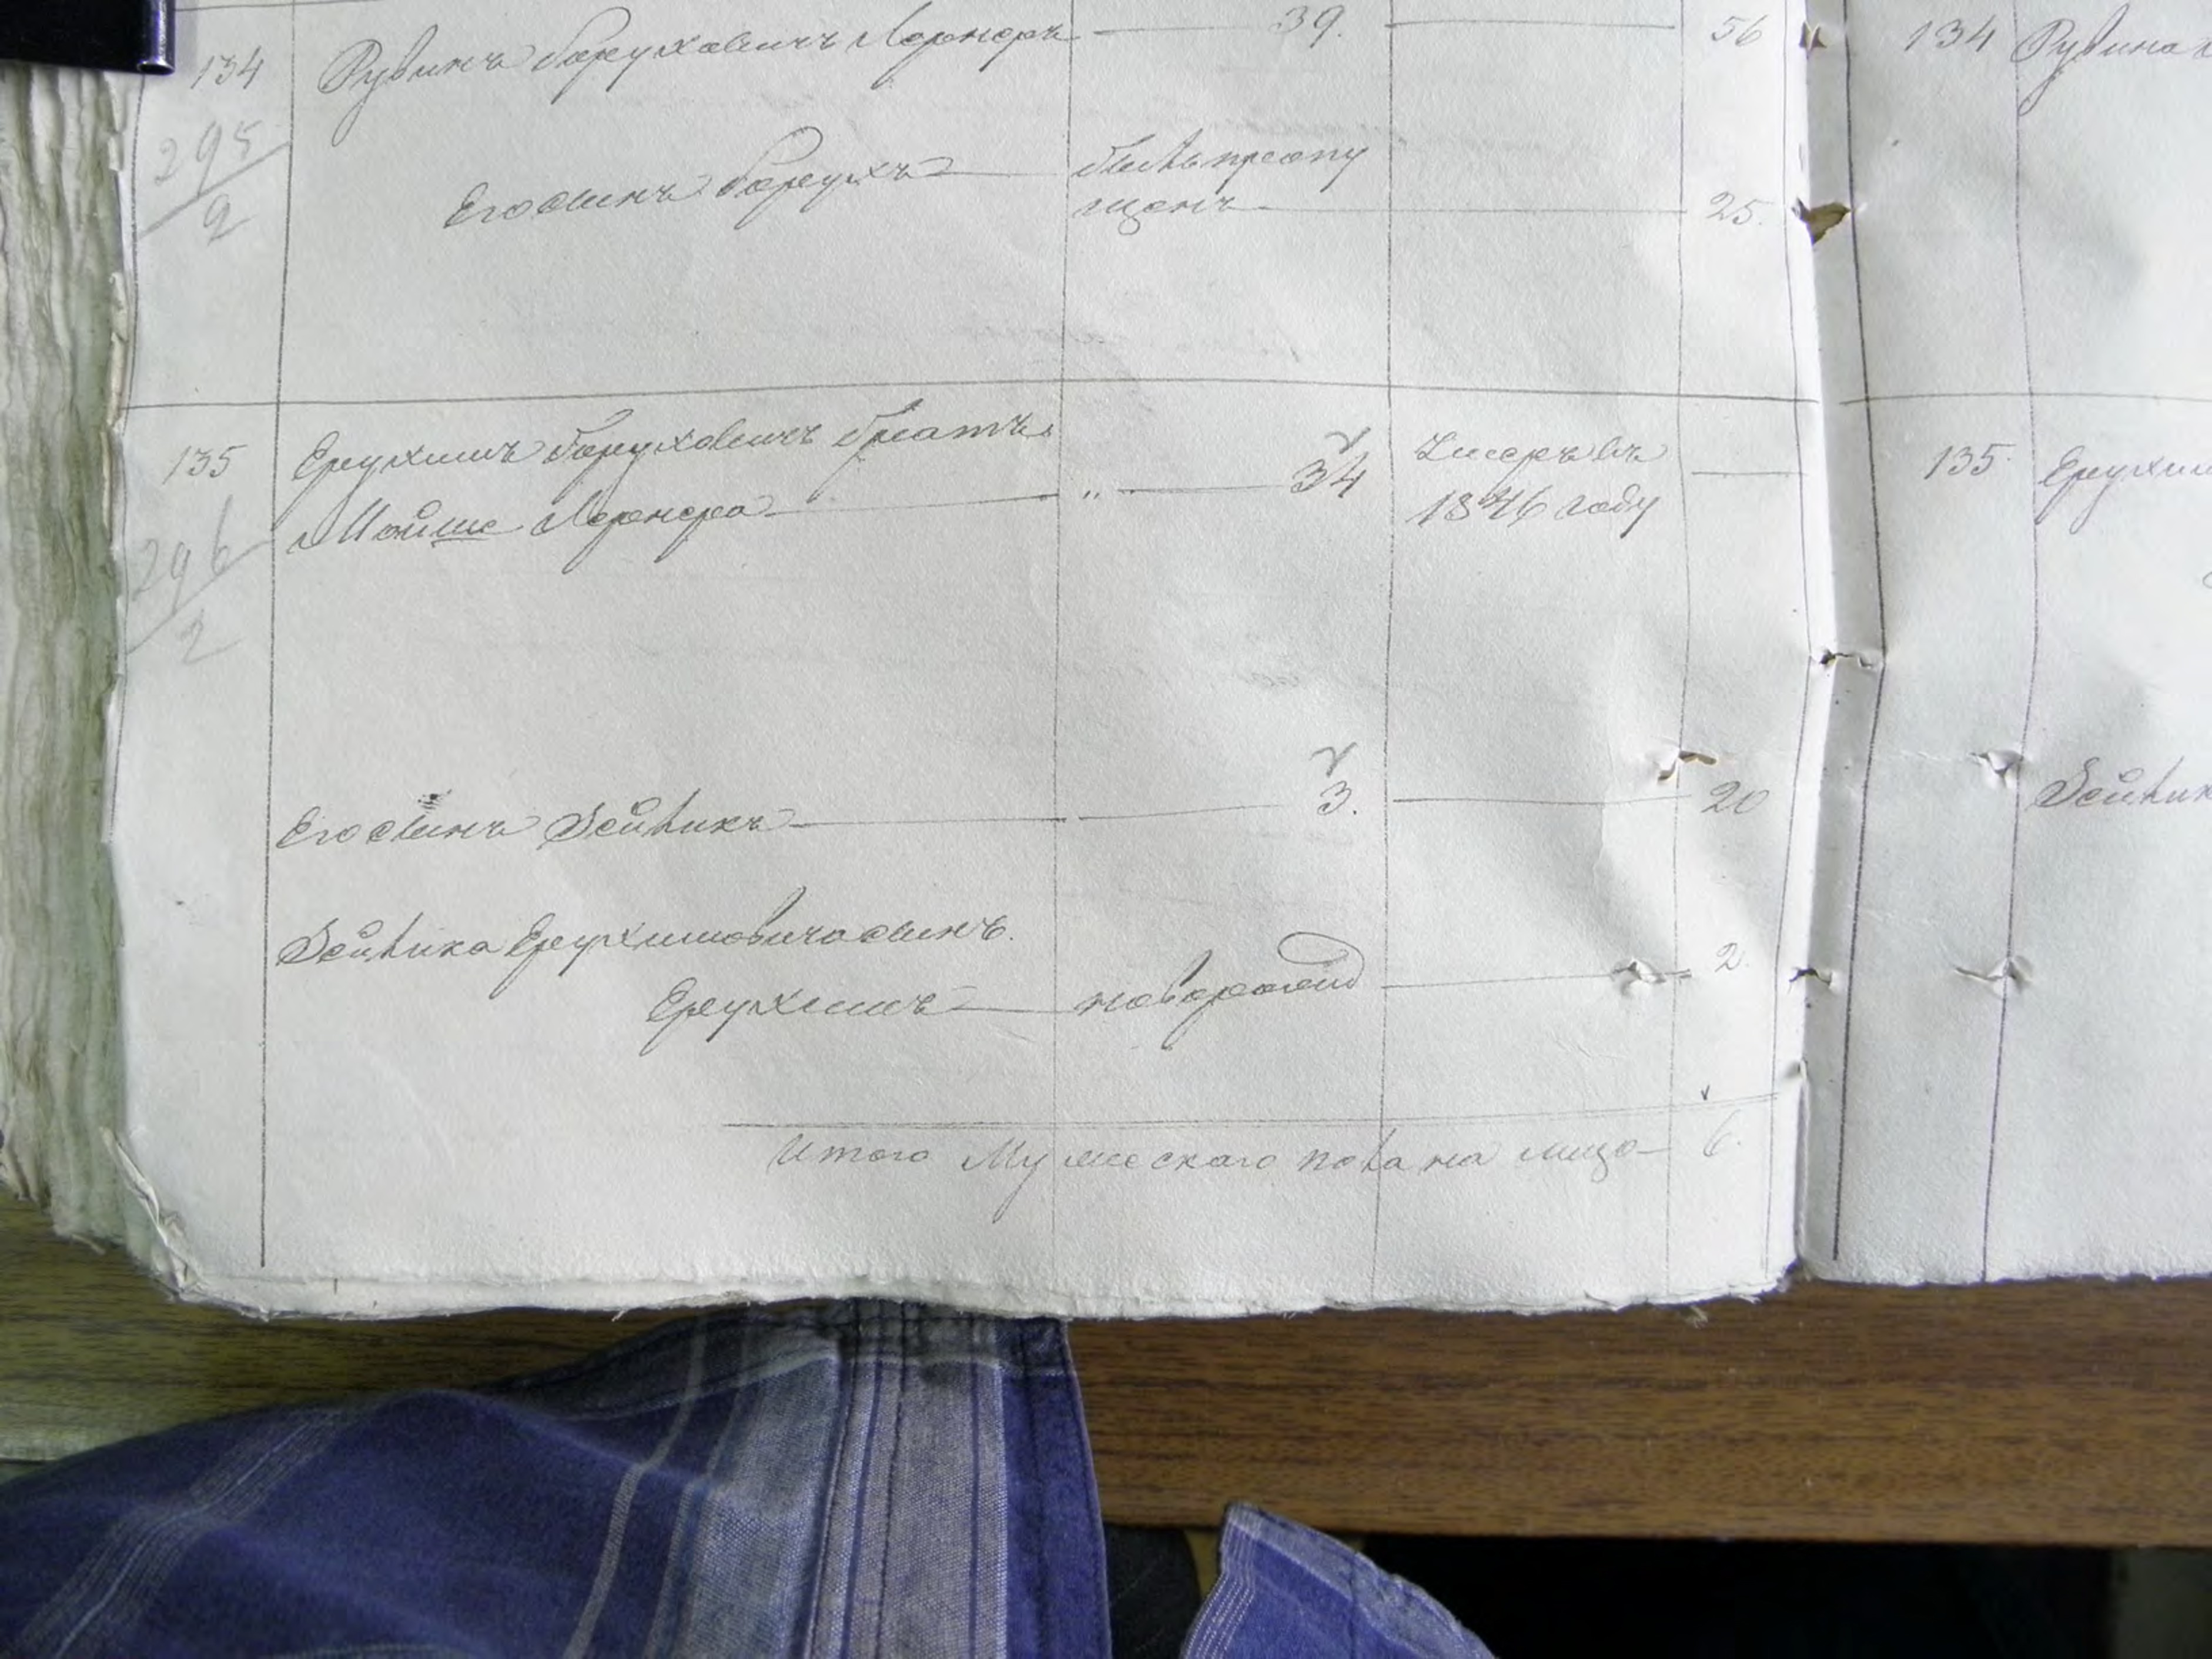 134 Рувинъ Боруховичъ Лернеръ — 39. — 56
295/2
Его сынъ Борухъ — былъ пропу
щенъ — 25.
135 Ерухимъ Боруховичъ братъ 34 Умеръ въ —
Мойше Лернера — " — 1846 году
296/2
Его сынъ Зейликъ — 3. — 20
Зейлика Ерухимовича сынъ.
Ерухимъ — новорожд — 2.
Итого Мужескаго пола на лицо — 6.
134 Рувина
135 Ерухим
Зейлик